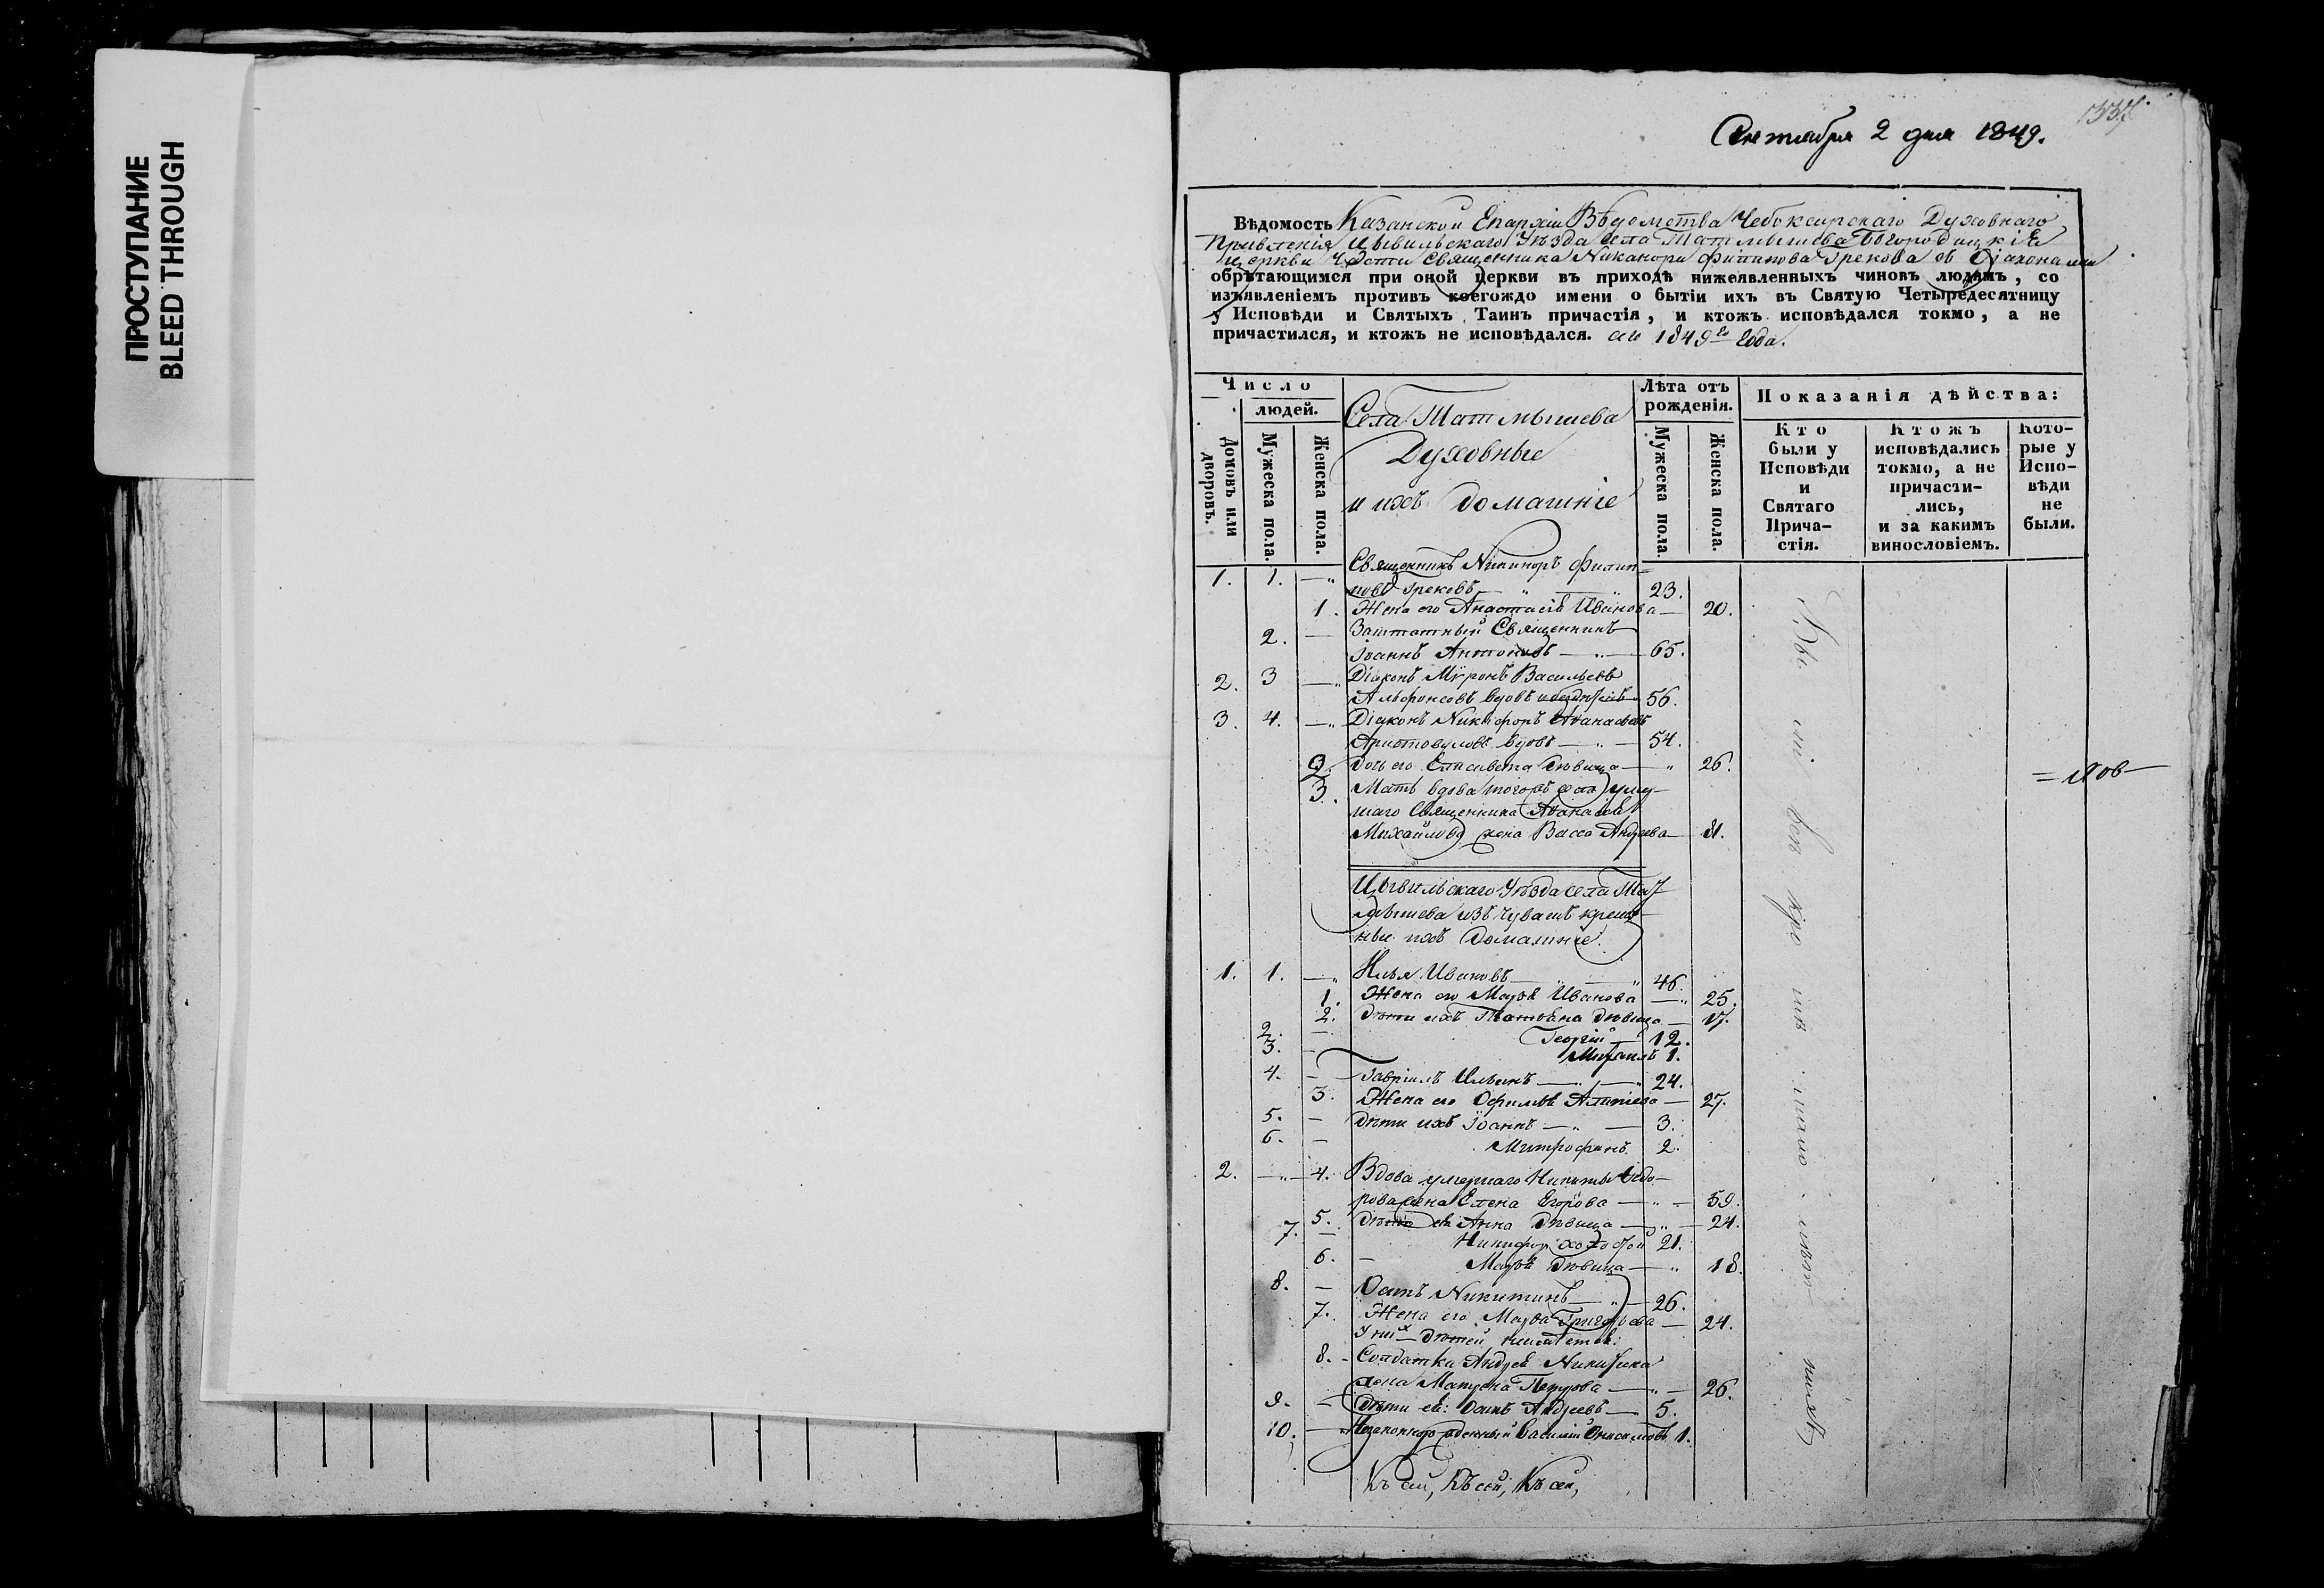 ПРОСТУПАНИЕ
BLEED THROUGH
Октября 2 дня 1849.
Вѣдомость Казанской Епархіи Вѣдомства Чебоксарскаго Духовнаго
Правленія Цывильскаго Уѣзда села Татмышева Богородицкія
церкви части Священника Никанора Филипова Грекова съ Діаконами
обрѣтающимся при оной церкви въ приходѣ нижеявленныхъ чиновъ людямъ, со
изъявленіемъ противъ коегождо имени о бытіи ихъ въ Святую Четыредесятницу
у Исповѣди и Святыхъ Таинъ причастія, и ктожъ исповѣдался токмо, а не
причастился, и ктожъ не исповѣдался. 1849го года.
Число
людей.
Домовъ или дворовъ.
Мужеска пола.
Женска пола.
Села Татмышева
Духовные
и ихъ домашніе
Лѣта отъ
рожденія.
Мужеска пола.
Женска пола.
Показанія дѣйства:
Кто
были у
Исповѣди
и
Святаго
Прича-
стія.
Ктожъ
исповѣдались
токмо, а не
причасти-
лись,
и за какимъ
винословіемъ.
Кото-
рые у
Испо-
вѣди
не
были.
1. 1. —„ Священникъ Никаноръ Филип-
повъ Грековъ — „ — 23.
1. Жена его Анастасія Иванова — 20.
2. — Заштатный Священникъ
Іоаннъ Антоновъ — „ — 65.
2. 3 —„ Діаконъ Мѵронъ Васильевъ
Альфонсовъ вдовъ 56.
3. 4. —„ Діаконъ Никифоръ Аѳанасьевъ
Аристовуловъ вдовъ — „ — 54.
2. Дочь его Елисавета дѣвица — „ 26.
3. Мать вдова тогожъ села умер-
шаго Священника Аѳанасія
Михайлова жена Васса Андреева — 81.
Цывильскаго Уѣзда села Тат
мышева изъ чувашъ креще-
ные ихъ домашніе.
1. 1. —„ Илья Ивановъ — „ — „ 46.
1. Жена его Марѳа Иванова — „ 25.
2. Дѣти ихъ Татьяна дѣвица — 17.
2. — Георгій — 12.
3. — Михаилъ 1.
4. — Гавріилъ Ильинъ — „ — „ 24.
3. Жена его — 27.
5. — Дѣти ихъ Іоаннъ — „ — 3.
6. — Митрофанъ. 2.
2. —„— 4. Вдова умершаго Никиты Ѳедо-
рова жена Елена Егорова — „ — 59.
5. Анна дѣвица — „ — 24.
7. — Никифоръ холостой 21.
6. — Марѳа дѣвица — „ 18.
8. — Осипъ Никитинъ — „ — 26.
7. Жена его Марѳа Григорьева — 24.
У нихъ дѣтей
8. — Солдатка Андрея Никитина
жена Матрена Петрова — „ — 26.
9. — Дѣти ея: Осипъ Андреевъ — 5.
10. — Незаконнорожденный Василій 1.
Къ сей, Къ сей, Къ сей,